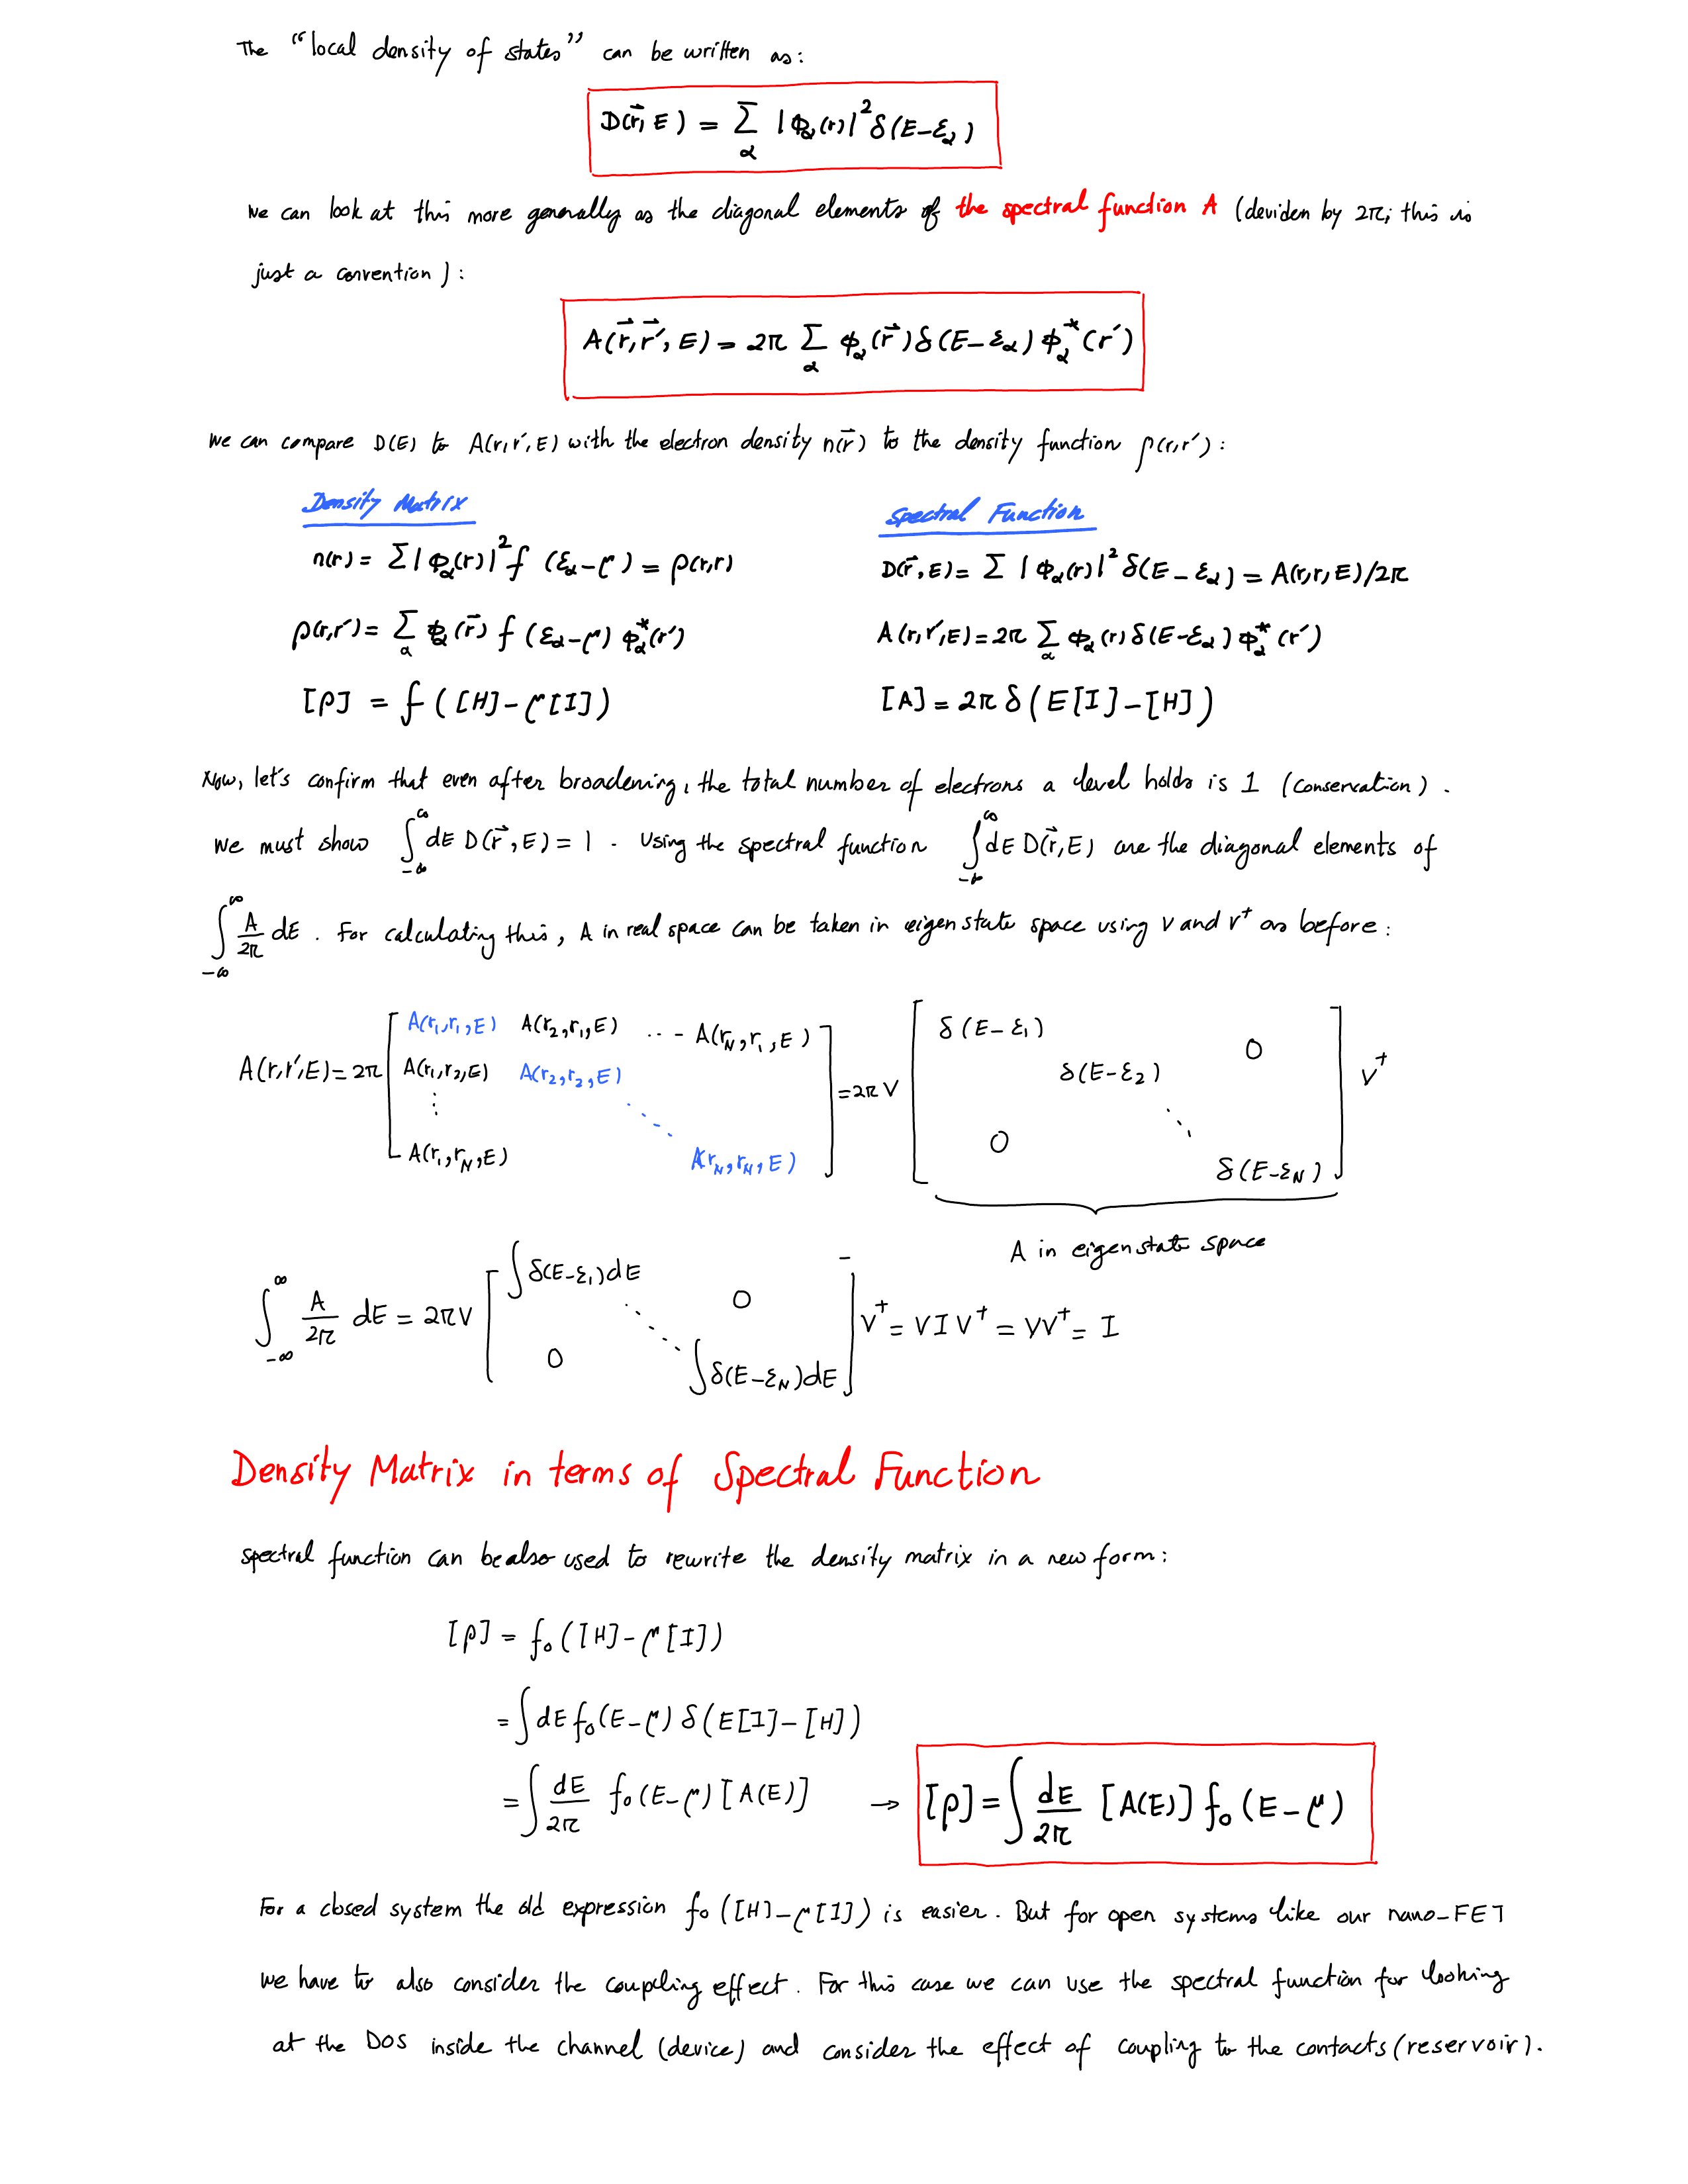 The “local density of states” can be written as:
D(r⃗, E) = Σ_α |Φ_α(r)|² δ(E-ε_α)
we can look at this more generally as the diagonal elements of the spectral function A (deviden by 2π; this is
just a convention):
A(r⃗,r⃗′, E) = 2π Σ_α Φ_α(r⃗) δ(E-ε_α) Φ_α*(r′)
we can compare D(E) to A(r,r′,E) with the electron density n(r⃗) to the density function ρ(r,r′):
Density Matrix
Spectral Function
n(r) = Σ |Φ_α(r)|² f (ε_α-μ) = ρ(r,r)
D(r⃗,E) = Σ |Φ_α(r)|² δ(E-ε_α) = A(r,r,E)/2π
ρ(r,r′) = Σ_α Φ_α(r⃗) f (ε_α-μ) Φ_α*(r′)
A(r,r′,E) = 2π Σ_α Φ_α(r) δ(E-ε_α) Φ_α*(r′)
[ρ] = f ([H]-μ[I])
[A] = 2π δ(E[I]-[H])
Now, let's confirm that even after broadening, the total number of electrons a level holds is 1 (conservation).
we must show ∫_{-∞}^{∞} dE D(r⃗,E) = 1. Using the spectral function ∫_{-∞}^{∞} dE D(r⃗,E) are the diagonal elements of
∫_{-∞}^{∞} A/2π dE. For calculating this, A in real space can be taken in eigenstate space using V and V⁺ as before:
A(r,r′,E) = 2π [ A(r₁,r₁,E) A(r₂,r₁,E) ... A(r_N,r₁,E)
A(r₁,r₂,E) A(r₂,r₂,E)
⋮ ⋱
A(r₁,r_N,E) A(r_N,r_N,E) ] = 2π V [ δ(E-ε₁) 0
δ(E-ε₂)
0 ⋱
δ(E-ε_N) ] V⁺
A in eigenstate space
∫_{-∞}^{∞} A/2π dE = 2πV [ ∫δ(E-ε₁)dE 0
⋱
0 ∫δ(E-ε_N)dE ] V⁺ = V I V⁺ = VV⁺ = I
Density Matrix in terms of Spectral Function
spectral function can be also used to rewrite the density matrix in a new form:
[ρ] = f₀([H]-μ[I])
= ∫dE f₀(E-μ) δ(E[I]-[H])
= ∫ dE/2π f₀(E-μ) [A(E)] → [ρ] = ∫ dE/2π [A(E)] f₀(E-μ)
For a closed system the old expression f₀([H]-μ[I]) is easier. But for open systems like our nano-FET
we have to also consider the coupling effect. For this case we can use the spectral function for looking
at the DOS inside the channel (device) and consider the effect of coupling to the contacts (reservoir).